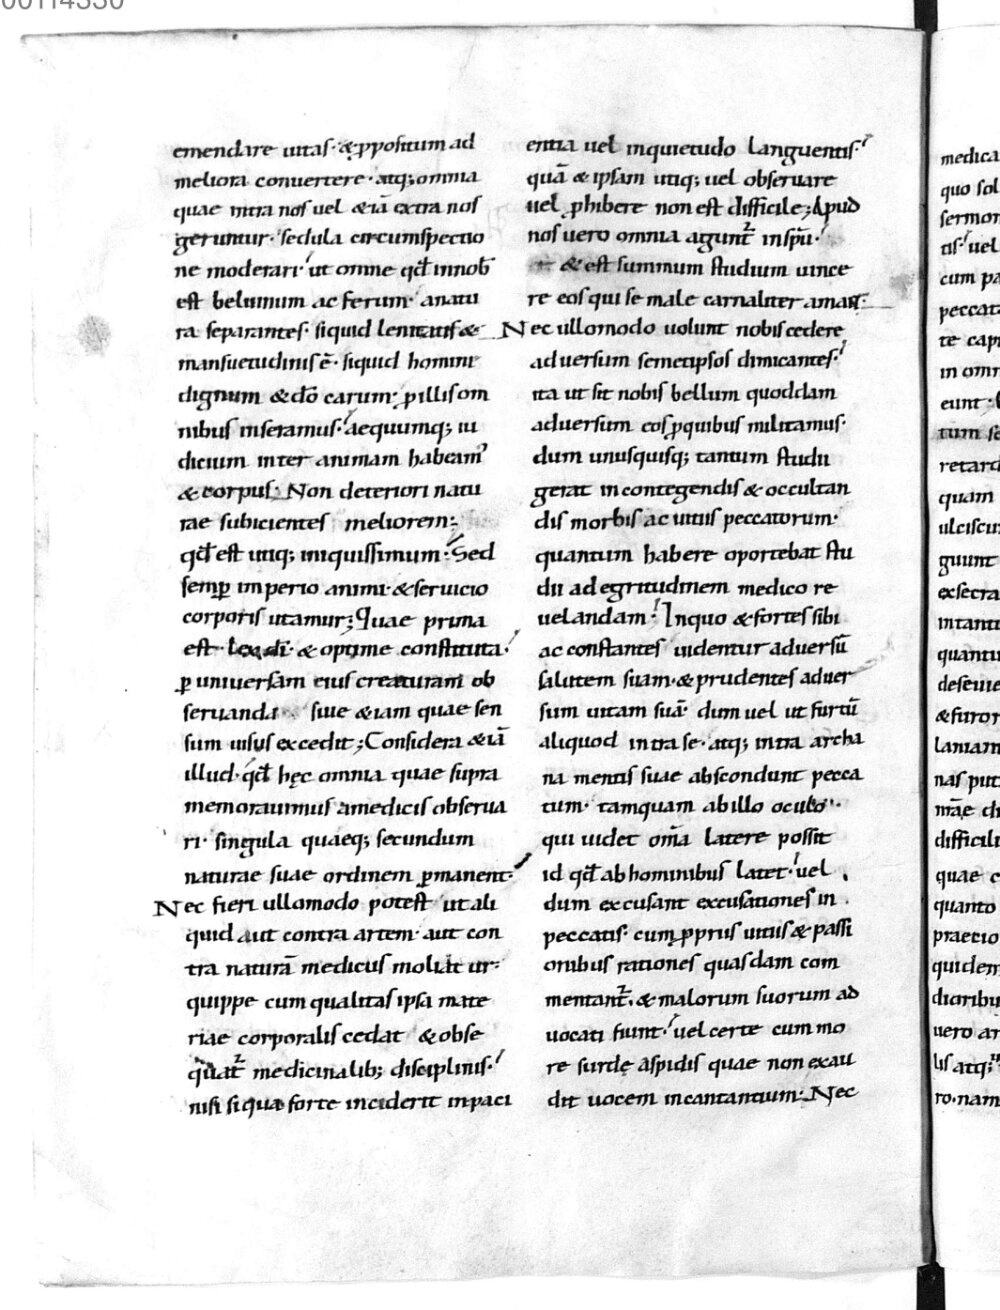 00114330
emendare uitas· & ꝓpositum ad
meliora conuertere· atq; omnia
quae intra nos uel &iā extra nos
geruntur· sedula circumspectio
ne moderari· ut omne qđ in nob
est beluinum ac ferum· a natu
ra separantes· siquid lenitatis &
mansuetudinis ē· siquid homini
dignum & dō carum· ꝑ illis om
nibus inseramus· aequumq; iu
dicium inter animam habeam'
& corpus· Non deteriori natu
rae subicientes meliorem·
qđ est utiq; iniquissimum· Sed
semꝑ imperio animi & seruicio
corporis utamur; Quae prima
est· & optime constituta·
ꝑ uniuersam eius creaturam ob
seruanda siue &iam quae sen
sum uisus excedit; Considera &iā
illud· qđ hęc omnia quae supra
memorauimus a medicis obserua
ri· singula quaeq; secundum
naturae suae ordinem ꝑmanent·
Nec fieri ullomodo potest ut ali
quid aut contra artem· aut con
tra naturā medicus moliat ur·
quippe cum qualitas ipsa mate
riae corporalis cedat & obse
quat̄ medicinalib; disciplinis·
nisi si qua forte inciderit inpaci
entia uel inquietudo languentis·
quā & ipsam utiq; uel obseruare
uel ꝓhibere non est difficile; Apud
nos uero omnia agunt̄ in spū·
& est summum studium uince
re eos qui se male carnaliter amant·
Nec ullomodo uolunt nobis cedere
aduersum semetipsos dimicantes·
ita ut sit nobis bellum quoddam
aduersum eos ꝓ quibus militamus·
dum unusquisq; tantum studii
gerat in contegendis & occultan
dis morbis ac uitiis peccatorum·
quantum habere oportebat stu
dii ad egritudinem medico re
uelandam· In quo & fortes sibi
ac constantes uidentur aduersū
salutem suam· & prudentes aduer
sum uitam suā· dum uel ut furtū
aliquod intra se· atq; intra archa
na mentis suae abscondunt pecca
tum· tamquam ab illo oculo·
qui uidet om̄a latere possit
id qđ ab hominibus latet· uel
dum excusant excusationes in
peccatis· cum ꝓpriis uitiis & passi
onibus rationes quasdam com
mentant̄· & malorum suorum ad
uocati fiunt· uel certe cum mo
re surdę aspidis quae non exau
dit uocem incantantium· Nec
medica
quo sol
sermon
tis· uel
cum pa
peccata
te cap
in omn
eunt·
tum se
retard
quam
ulciscu
guunt
exsecra
intanti
quantu
deseuie
& furor
laniam
nas put
māe di
difficili
quae c
quanto
praetio
quidem
diaribu
uero ar
lis atq;
ro· nam